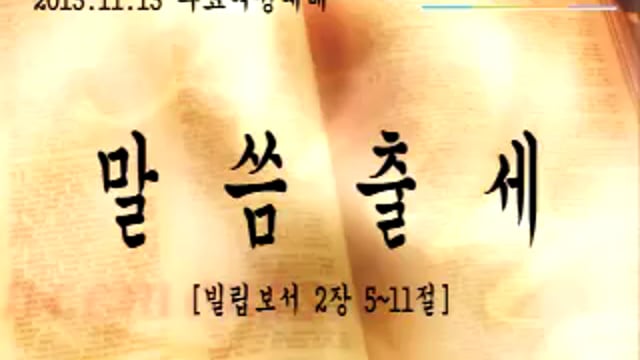 2013.11.13
말씀출세
[빌립보서 2장 5~11절]